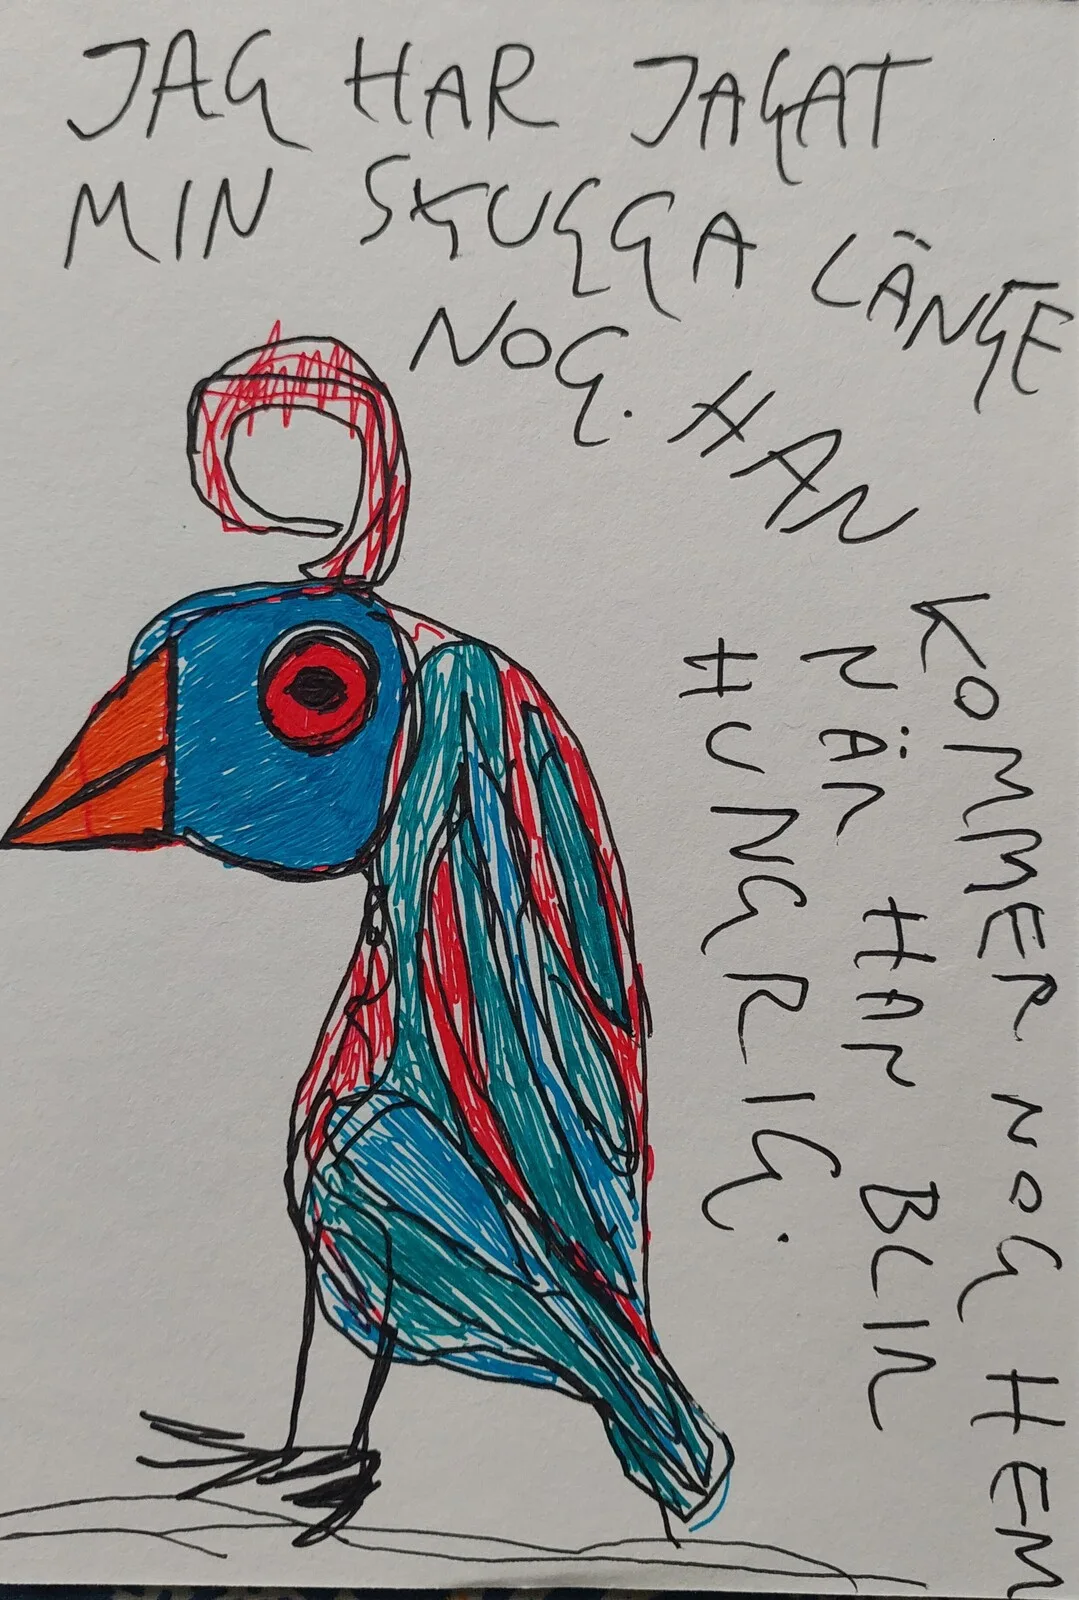 JAG HAR JAGAT
MIN SKUGGA LÄNGE
NOG. HAN
KOMMER NOG HEM
NÄR HAN BLIR
HUNGRIG.